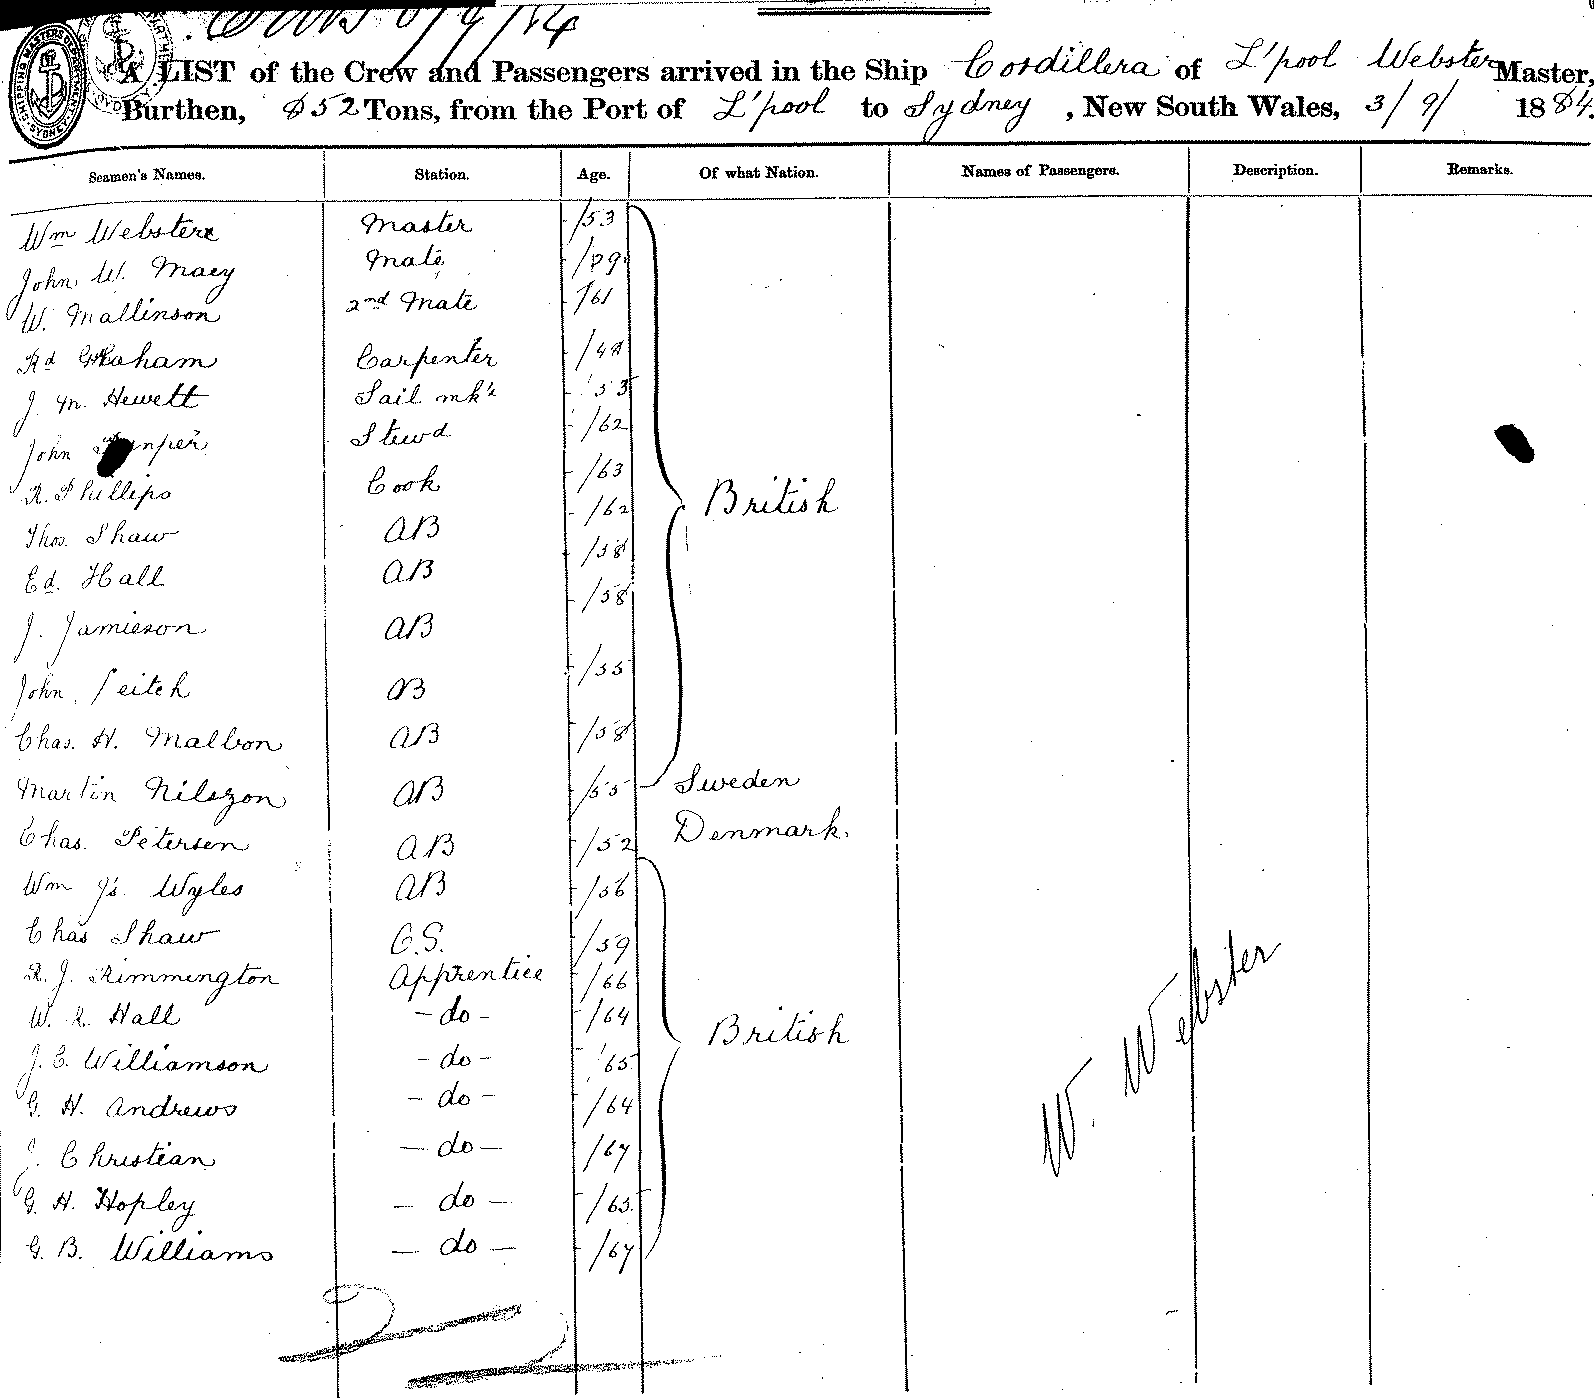 A LIST of the Crew and Passengers arrived in the Ship Cordillera of L'pool Webster Master,
Burthen, 852 Tons, from the Port of L'pool to Sydney, New South Wales, 3/9/ 1884.
Seamen's Names. Station. Age. Of what Nation. Names of Passengers. Description. Remarks.
Wm Webster Master /53
John W. Macy Mate
W. Mallinson 2nd Mate /61
Rd Graham Carpenter
J. M. Hewett Sail mkr '53
John Stewd /62
R. Phillips Cook /63
British
Thos. Shaw AB /62
Ed. Hall AB /58
J. Jamieson AB /58
John Leitch AB /55
Chas. H. Malbon AB /58
Martin Nilszon AB /55 Sweden
Chas. Petersen AB /52 Denmark.
Wm Js. Wyles AB /56
Chas Shaw O.S. /59
R. J. Rimmington Apprentice /66
W. R. Hall - do - /64
British
J. E. Williamson - do - '65
G. H. Andrews - do - /64
J. Christian - do - /67
G. H. Hopley - do - /65
G. B. Williams - do - /67
W. Webster